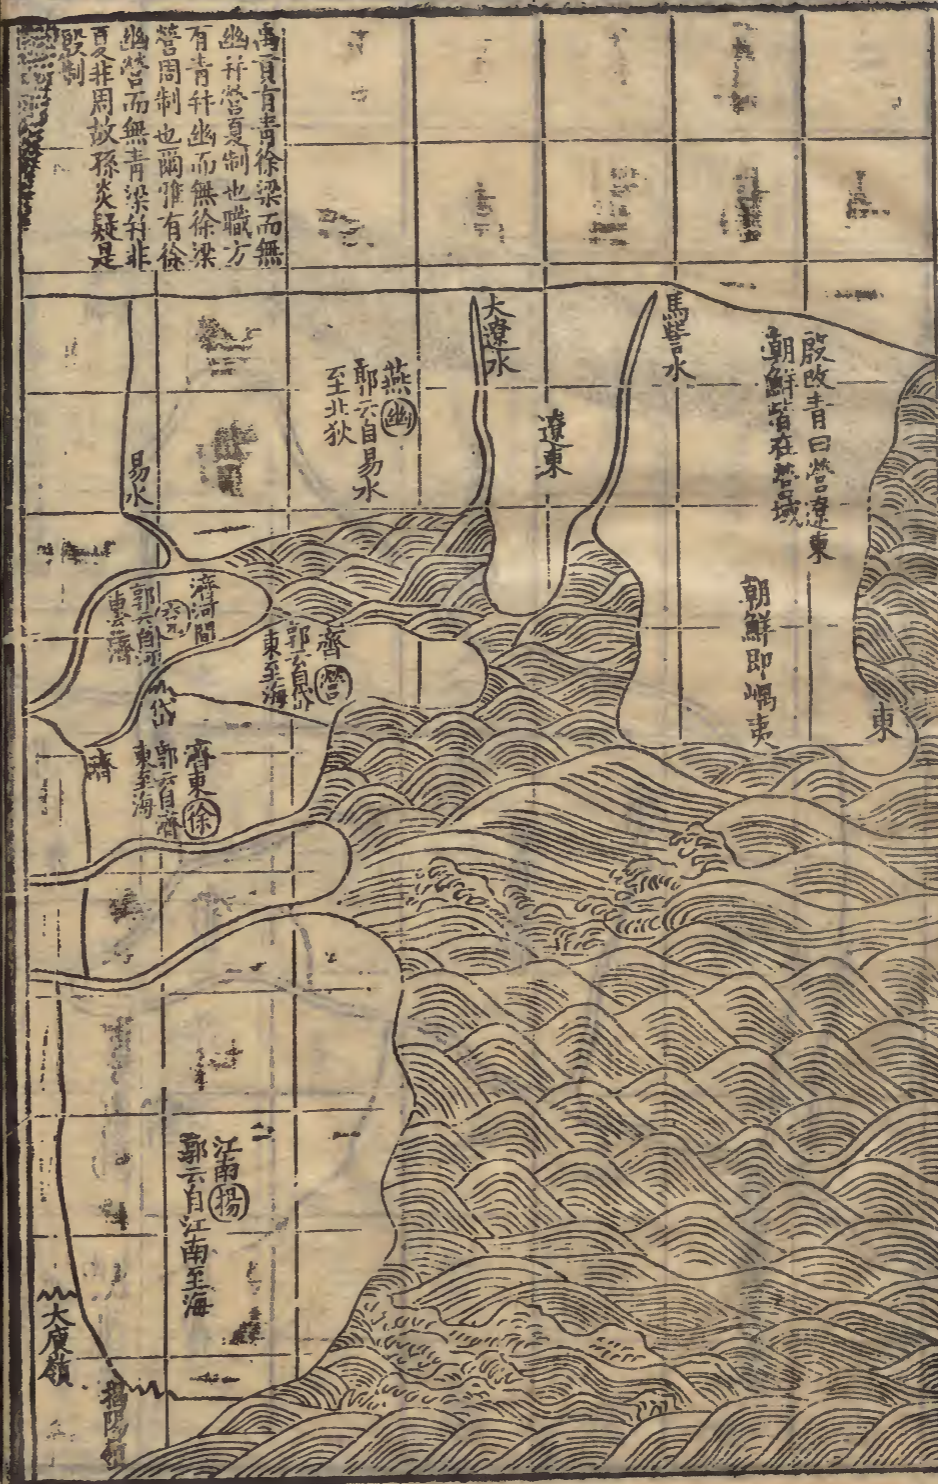 禹貢有青徐梁而無
幽并營夏制也職方
有青并幽而無徐梁
營周制也爾雅有徐
幽營而無青梁并非
夏非周故孫炎疑是
殷制
殷改青曰營遼東
朝鮮皆在營域
馬訾水
大遼水
遼東
燕幽
郭云自易水
至北狄
易水
朝鮮即嵎夷
東
濟河間
兖
郭云自河
東至濟
齊營
郭云自岱
東至海
岱
濟
濟東徐
郭云自濟
東至海
江南揚
郭云自江南至海
大庾嶺
揭陽嶺